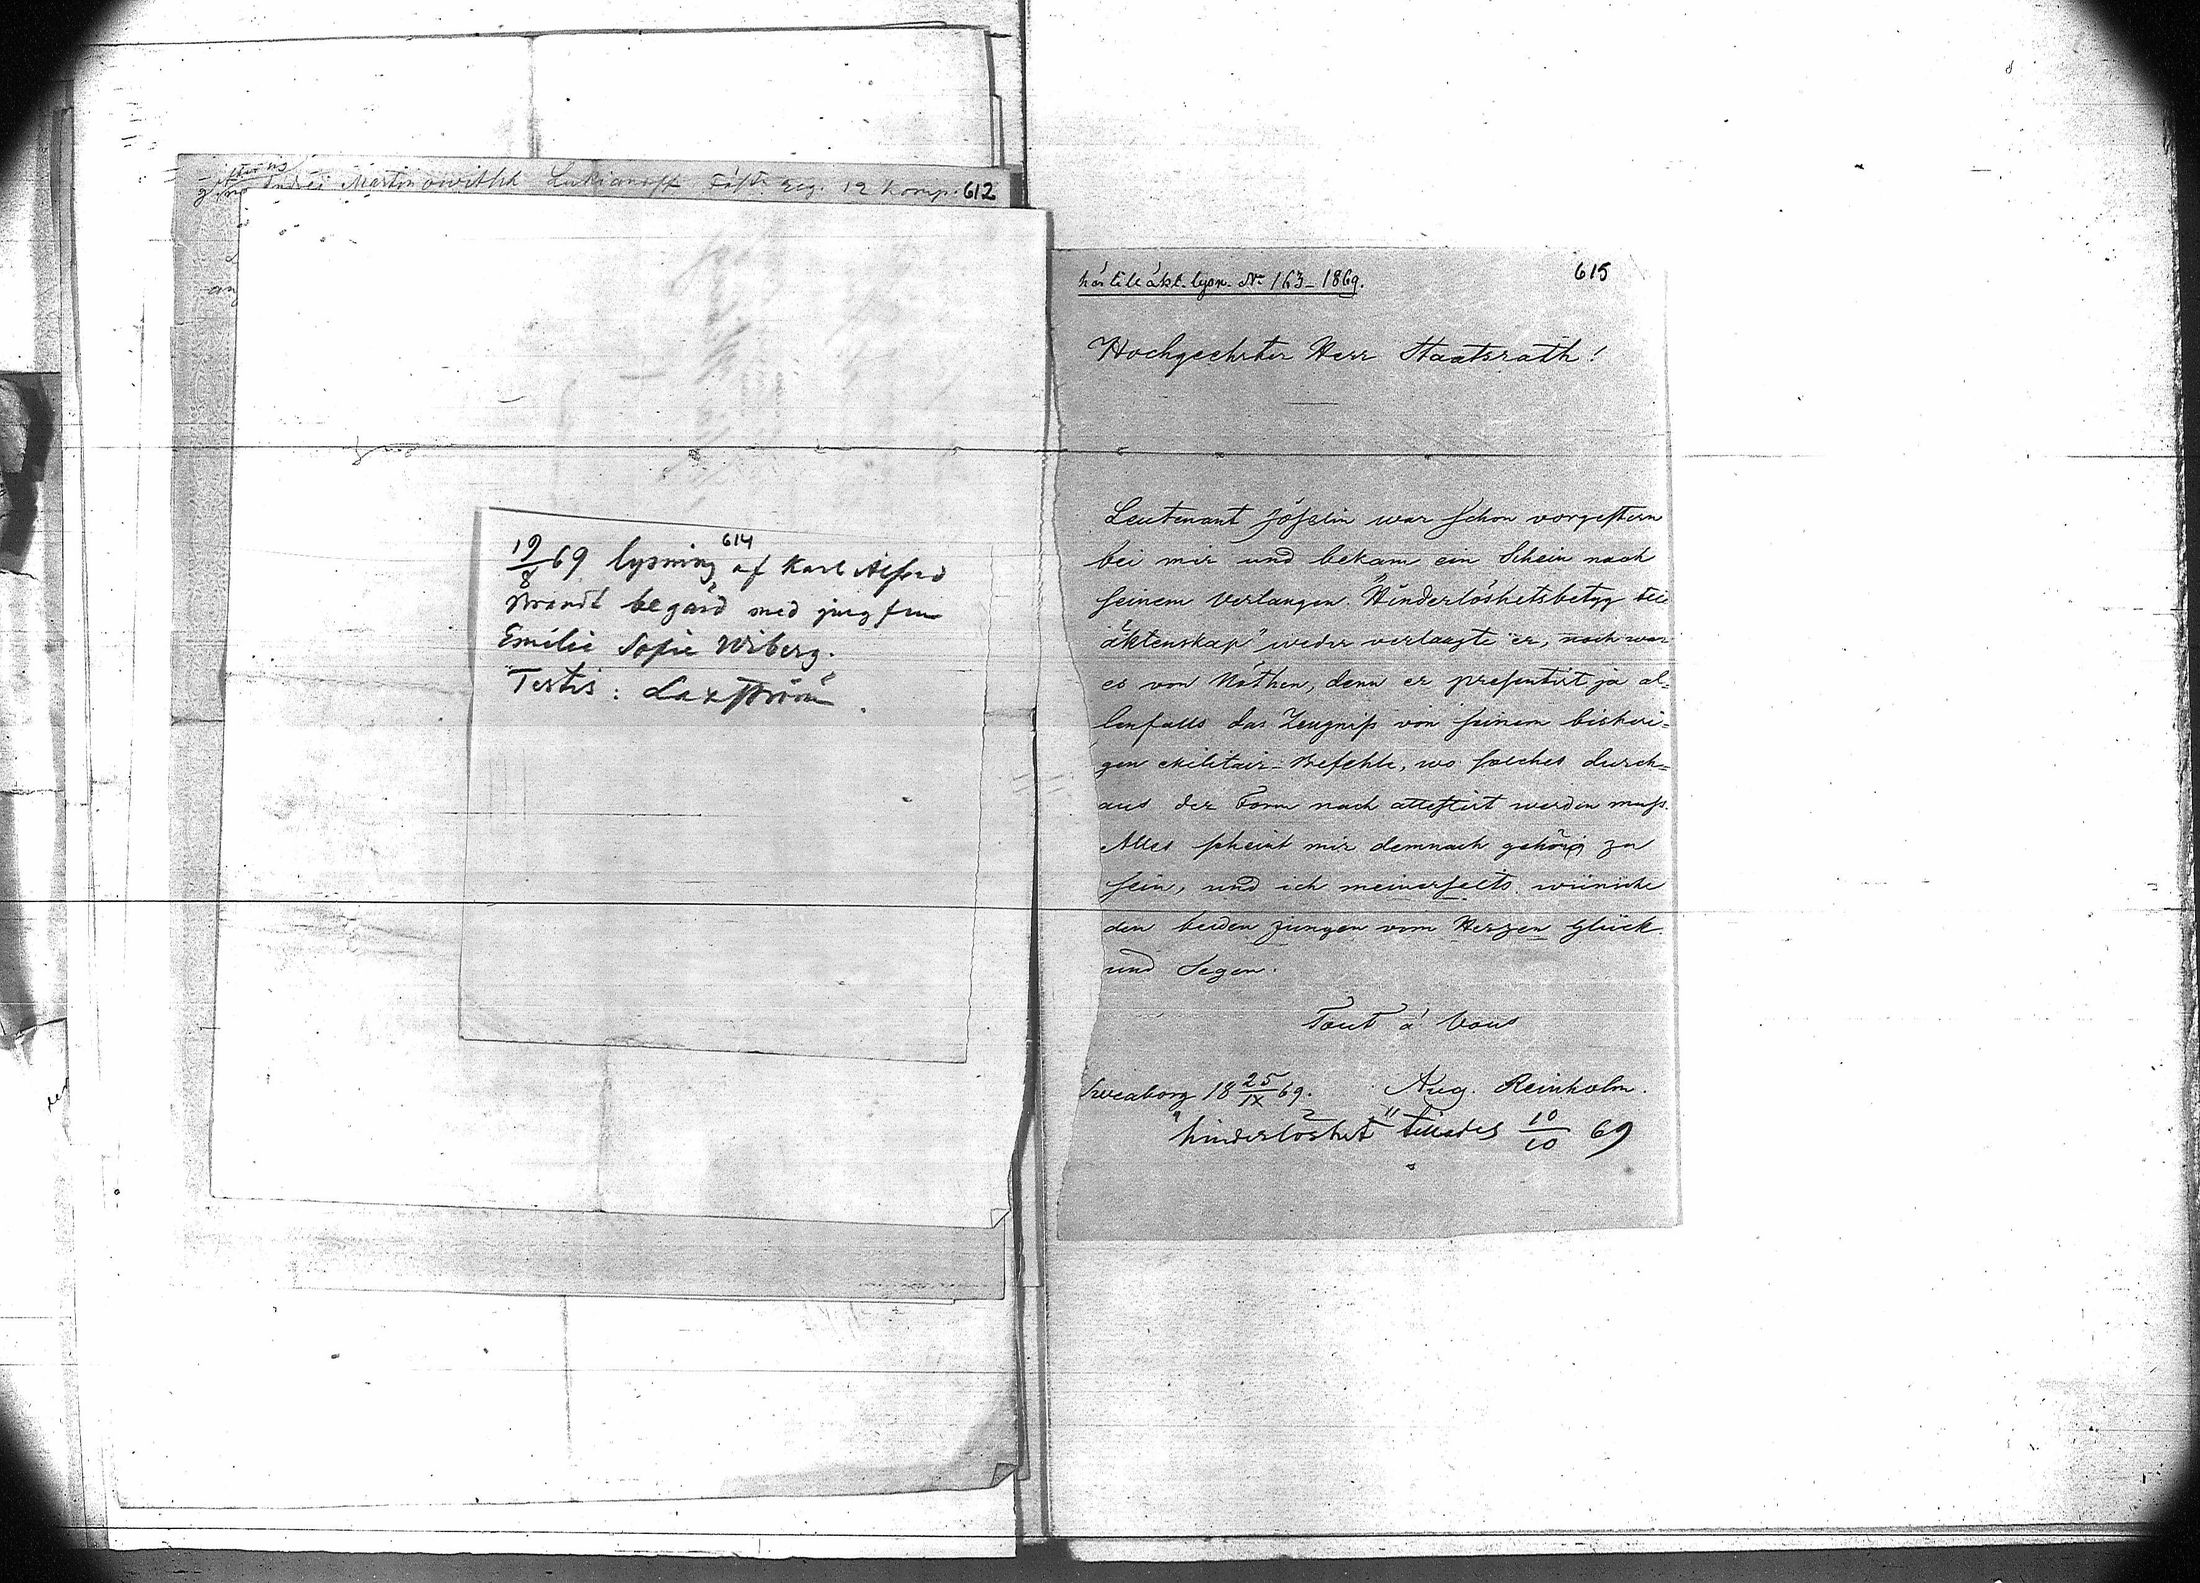 Andréi Martinowitsch Lukianoff Fästn. Reg. 12 Komp. 612
614
19/8 69 lysning af Karl Alfred
Brandt begärd med jungfrun
Emilie Sofie Wiberg.
Testis: Laxström.
615
hör till äkt. lysn. No 163–1869.
Hochgeehrter Herr Staatsrath!
Leutenant Jösselin war schon vorgestern
bei mir und bekam ein Schein nach
seinem Verlangen. "Hinderlöshetsbetyg till
äktenskap" weder verlangte er, noch war
es von Nöthen, denn er presentirt ja al=
lenfalls das Zeugniss von seinem bisheri=
gen Militair-Befehle, wo solches durch=
aus der Form nach attestirt werden muss.
Alles scheint mir demnach gehörig zu
sein, und ich meinerseits wünsche
den beiden jungen vom Herzen Glück
und Segen.
Tout à Vous
Sweaborg 18 25/IX 69. Aug. Reinholm.
"hinderlöshet" 10/10 69